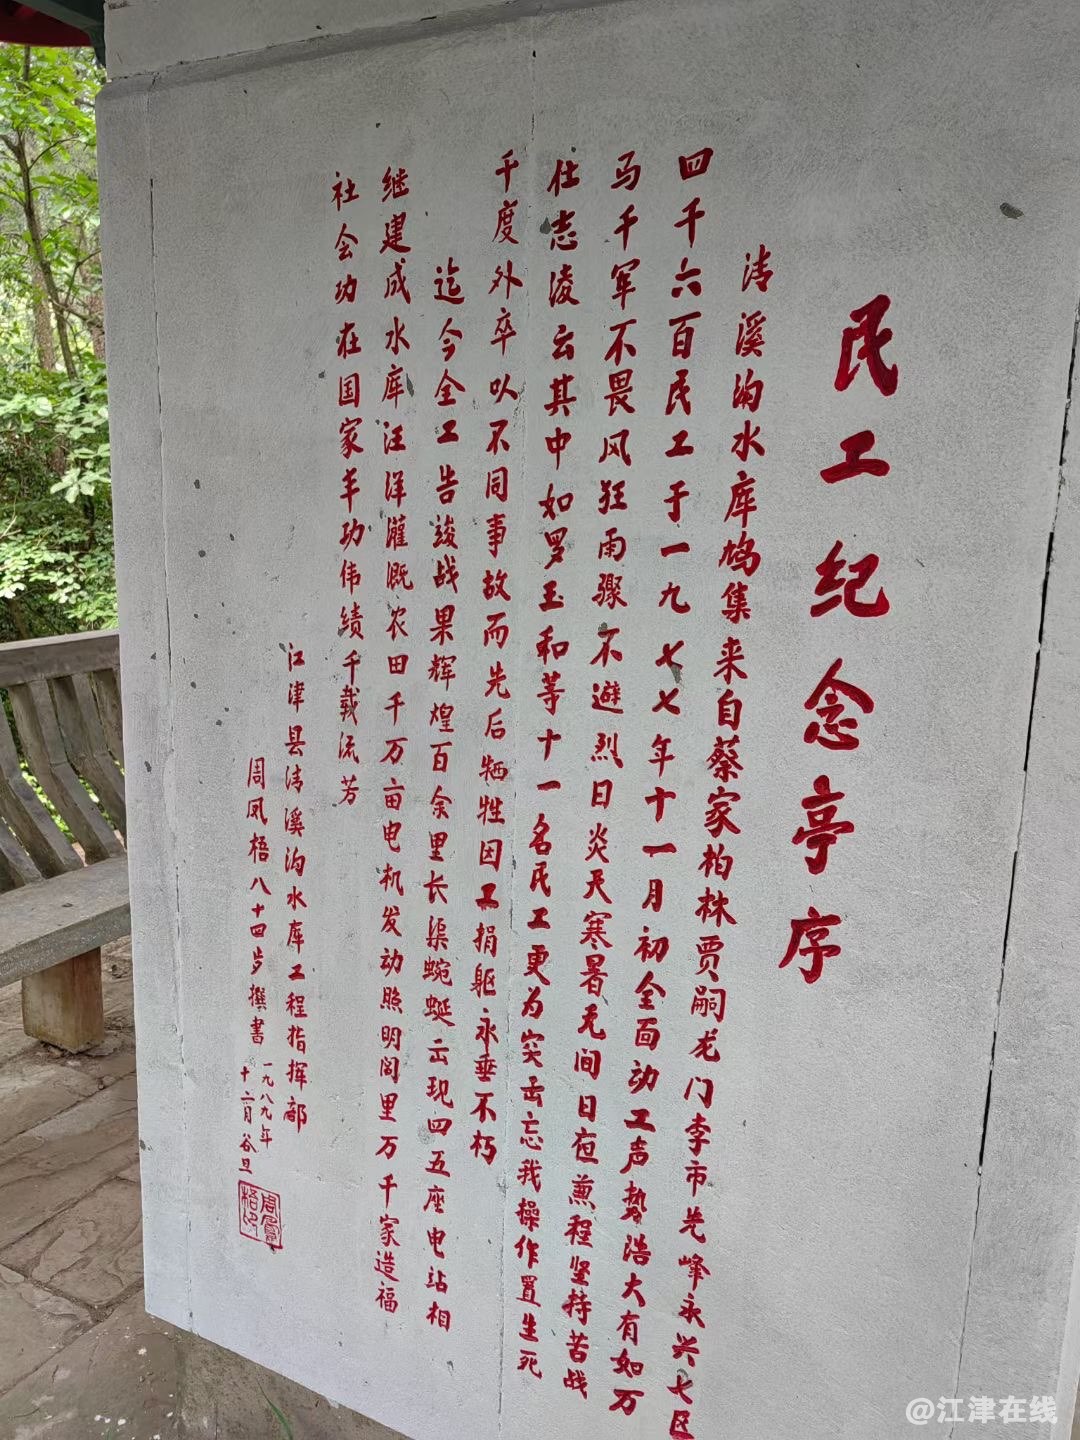 民工纪念亭序
清溪沟水库鸠集来自蔡家柏林贾嗣龙门李市先峰永兴七区
四千六百民工于一九七七年十一月初全面动工声势浩大有如万
马千军不畏风狂雨骤不避烈日炎天寒暑无间日夜兼程坚持苦战
壮志凌云其中如罗玉和等十一名民工更为突击忘我操作置生死
于度外卒以不同事故而先后牺牲因工捐躯永垂不朽
迄今全工告竣战果辉煌百余里长渠蜿蜒云现四五座电站相
继建成水库汪洋灌溉农田千万亩电机发动照明闾里万千家造福
社会功在国家丰功伟绩千载流芳
江津县清溪沟水库工程指挥部
周凤梧八十四岁撰书
一九八九年
十二月谷旦
@江津在线